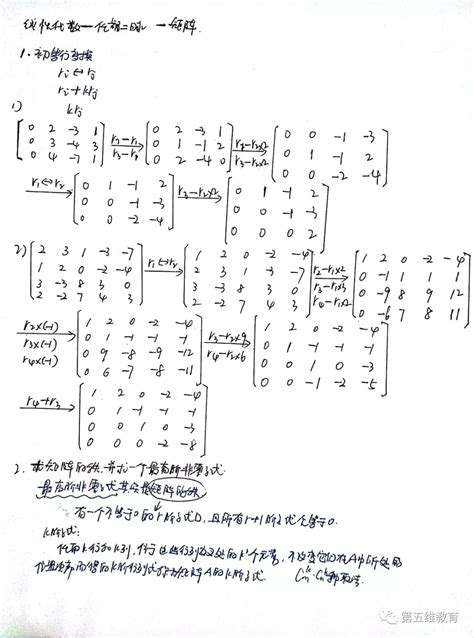 线性代数一作业二 一 矩阵.
1. 初等行变换
ri ↔ rj
ri + krj
krj
1) [0 2 -3 1; 0 3 -4 3; 0 4 -7 1] r2-r1 r3-r1 → [0 2 -3 1; 0 1 -1 2; 0 2 -4 0] → [0 0 -1 -3; 0 1 -1 2; 0 0 -2 -4]
r1↔r2 → [0 1 -1 2; 0 0 -1 -3; 0 0 -2 -4] r3-r2×2 → [0 1 -1 2; 0 0 -1 -3; 0 0 0 2]
2) [2 3 1 -3 -7; 1 2 0 -2 -4; 3 -3 8 3 0; 2 -2 7 4 3] r1↔r2 → [1 2 0 -2 -4; 2 3 1 -3 -7; 3 -3 8 3 0; 2 -2 7 4 3] r2-r1×2 r3-r1×3 r4-r1×2 → [1 2 0 -2 -4; 0 -1 1 1 1; 0 -9 8 9 12; 0 -6 7 8 11]
r2×(-1) r3×(-1) r4×(-1) → [1 2 0 -2 -4; 0 1 -1 -1 -1; 0 9 -8 -9 -12; 0 6 -7 -8 -11] r3-r2×9 r4-r2×6 → [1 2 0 -2 -4; 0 1 -1 -1 -1; 0 0 1 0 -3; 0 0 -1 -2 -5]
r4+r3 → [1 2 0 -2 -4; 0 1 -1 -1 -1; 0 0 1 0 -3; 0 0 0 -2 -8]
2. 求矩阵的秩, 并求一个最高阶非零子式.
最高阶非零子式其实是矩阵的秩
有一个不等于0的r阶子式D, 且所有r+1阶子式全等于0.
k阶子式:
任取k行和k列, 位于这些行列交叉处的k²个元素, 不改变它们在A中所处的
位置次序而得的k阶行列式称为矩阵A的k阶子式.
第五维教育